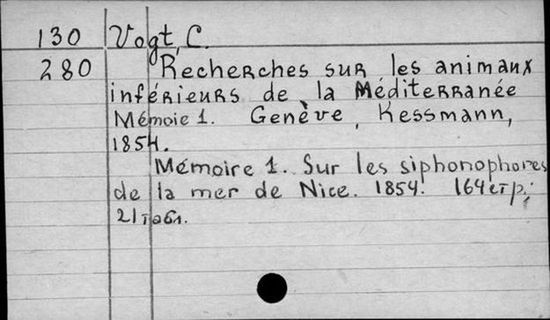 130 Vogt, C.
280 Recherches sur les animaux
inférieurs de la Méditerranée
Mémoie 1. Genève, Kessmann,
1854.
Mémoire 1. Sur les siphonophores
de la mer de Nice. 1854. 164 стр.;
21 табл.